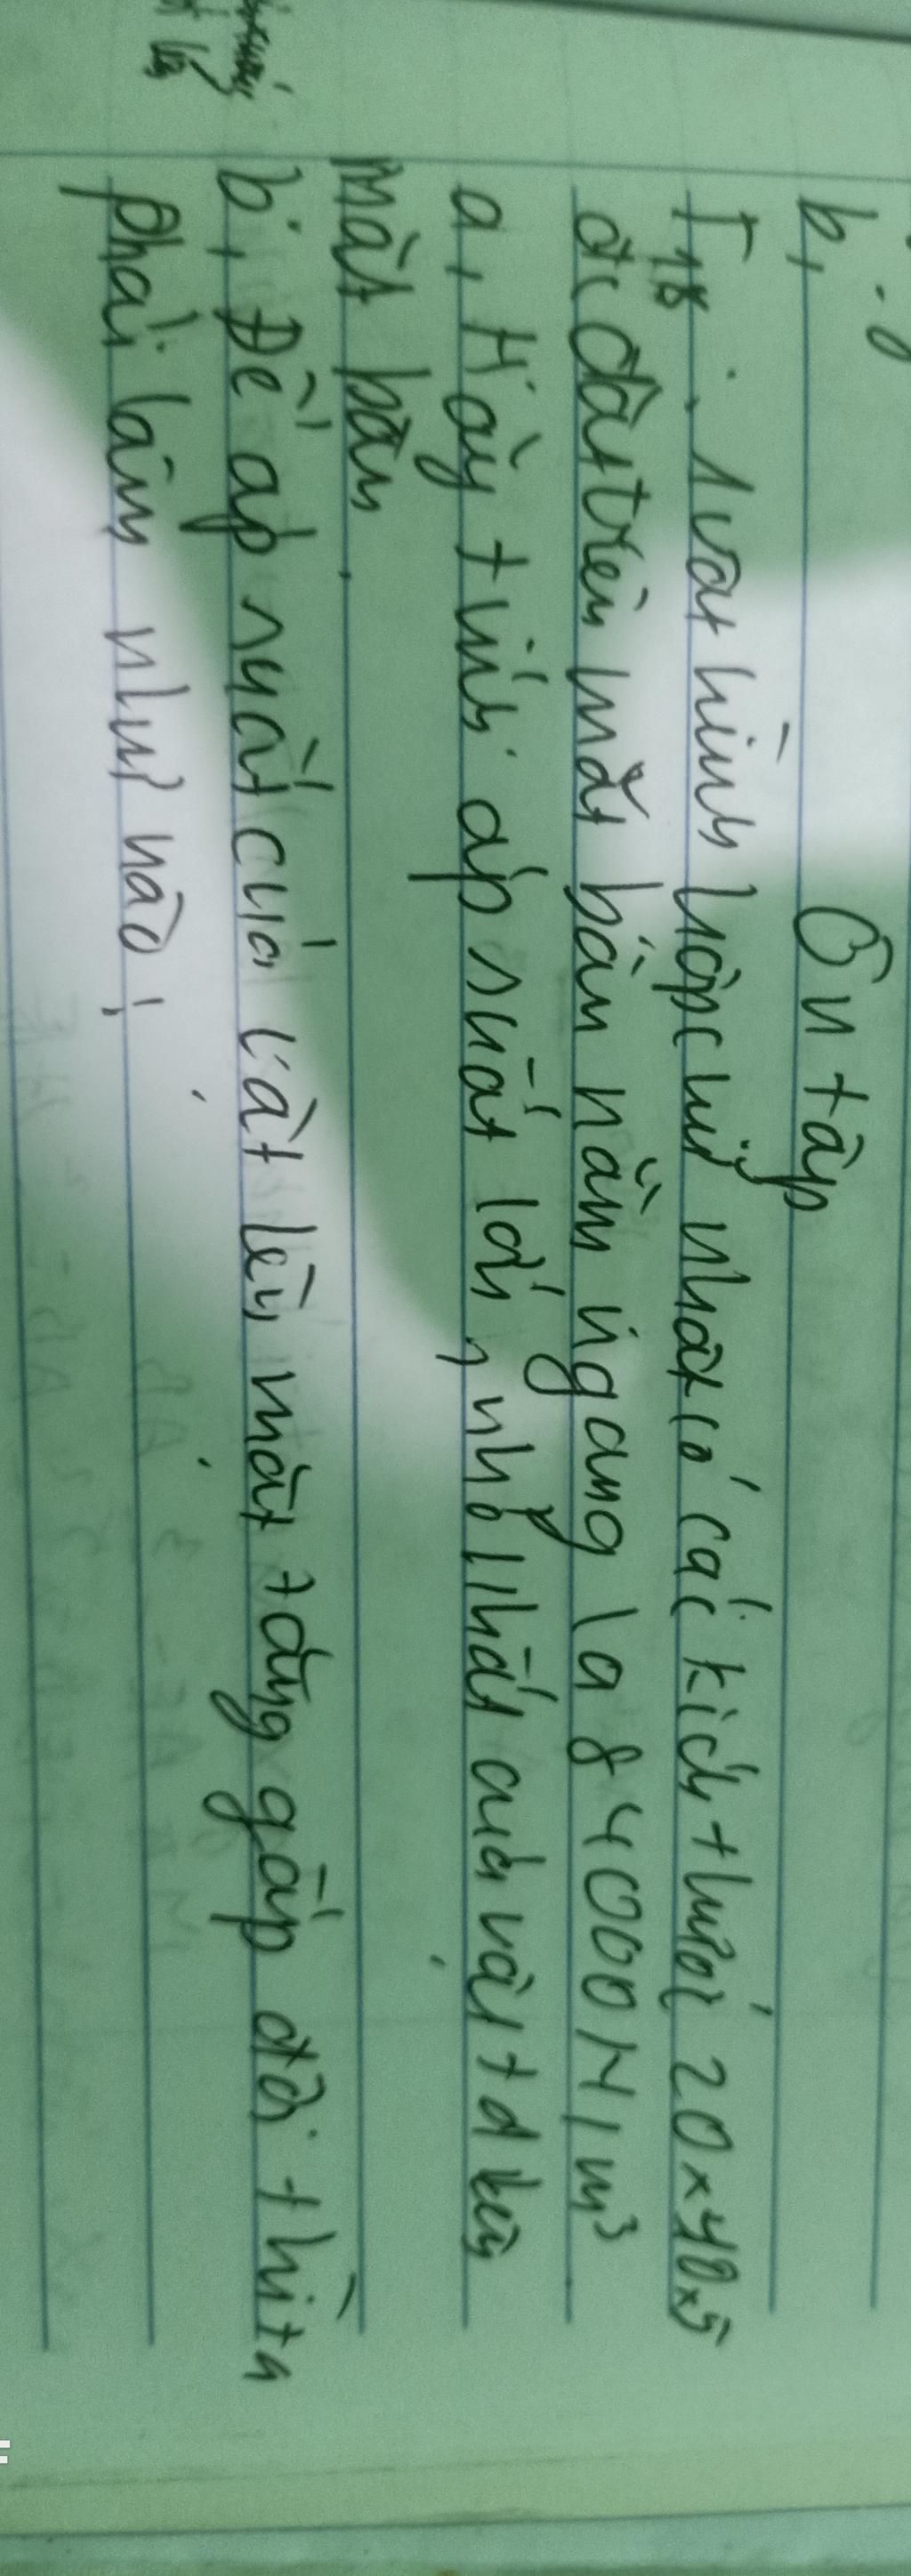 b,
Ôn tập
1 vật hình hộp chữ nhật có các kích thước 20x40x5
đc đặt trên mặt bàn nằm ngang là 84000N/m³
a, Hãy tính áp suất lớn, nhỏ nhất của vật td lên
mặt bàn
b, Để áp suất của vật lên mặt tăng gấp đôi thì ta
phải làm như nào